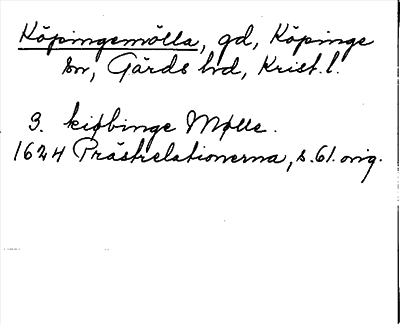 Köpingemölla, gd, Köpinge
sn, Gärds hd, Krist. l.
3. kiøbinge Mølle.
1624 Prästrelationerna, s. 61. orig.